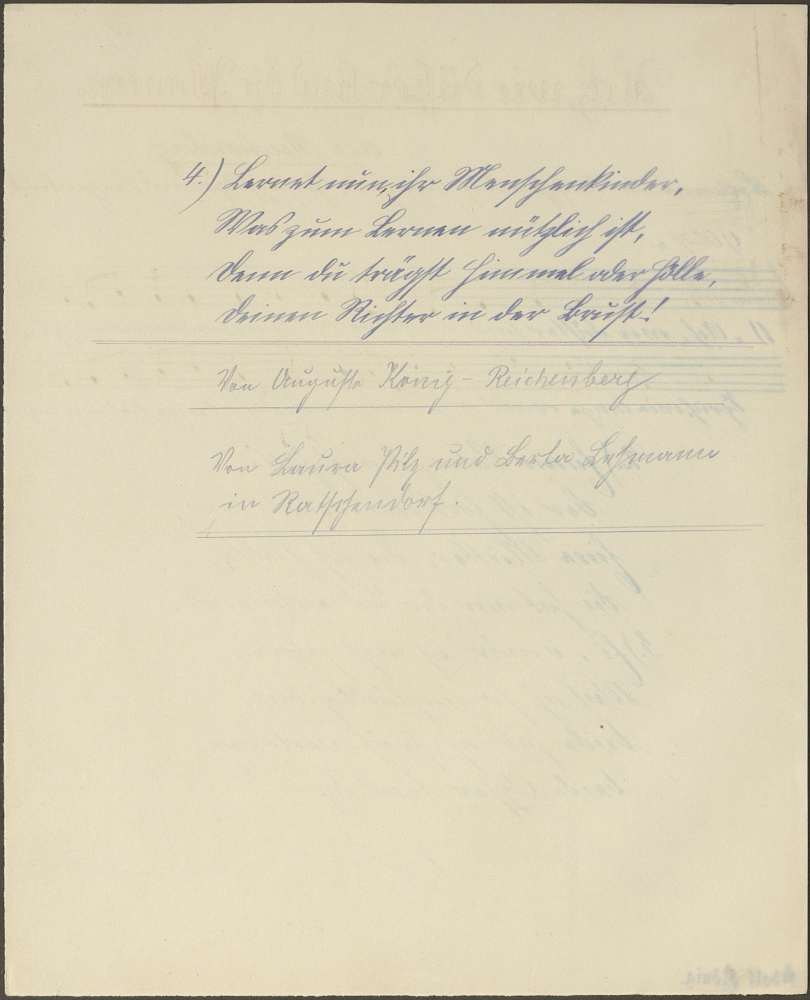 4.) Lernet nun, ihr Menschenkinder,
Was zum Lernen nützlich ist,
Denn du trägst Himmel oder Hölle,
Deinen Richter in der Brust!
Von Auguste König - Reichenberg.
Von Laura Pilz und Berta Lehmann
in Ratschendorf.